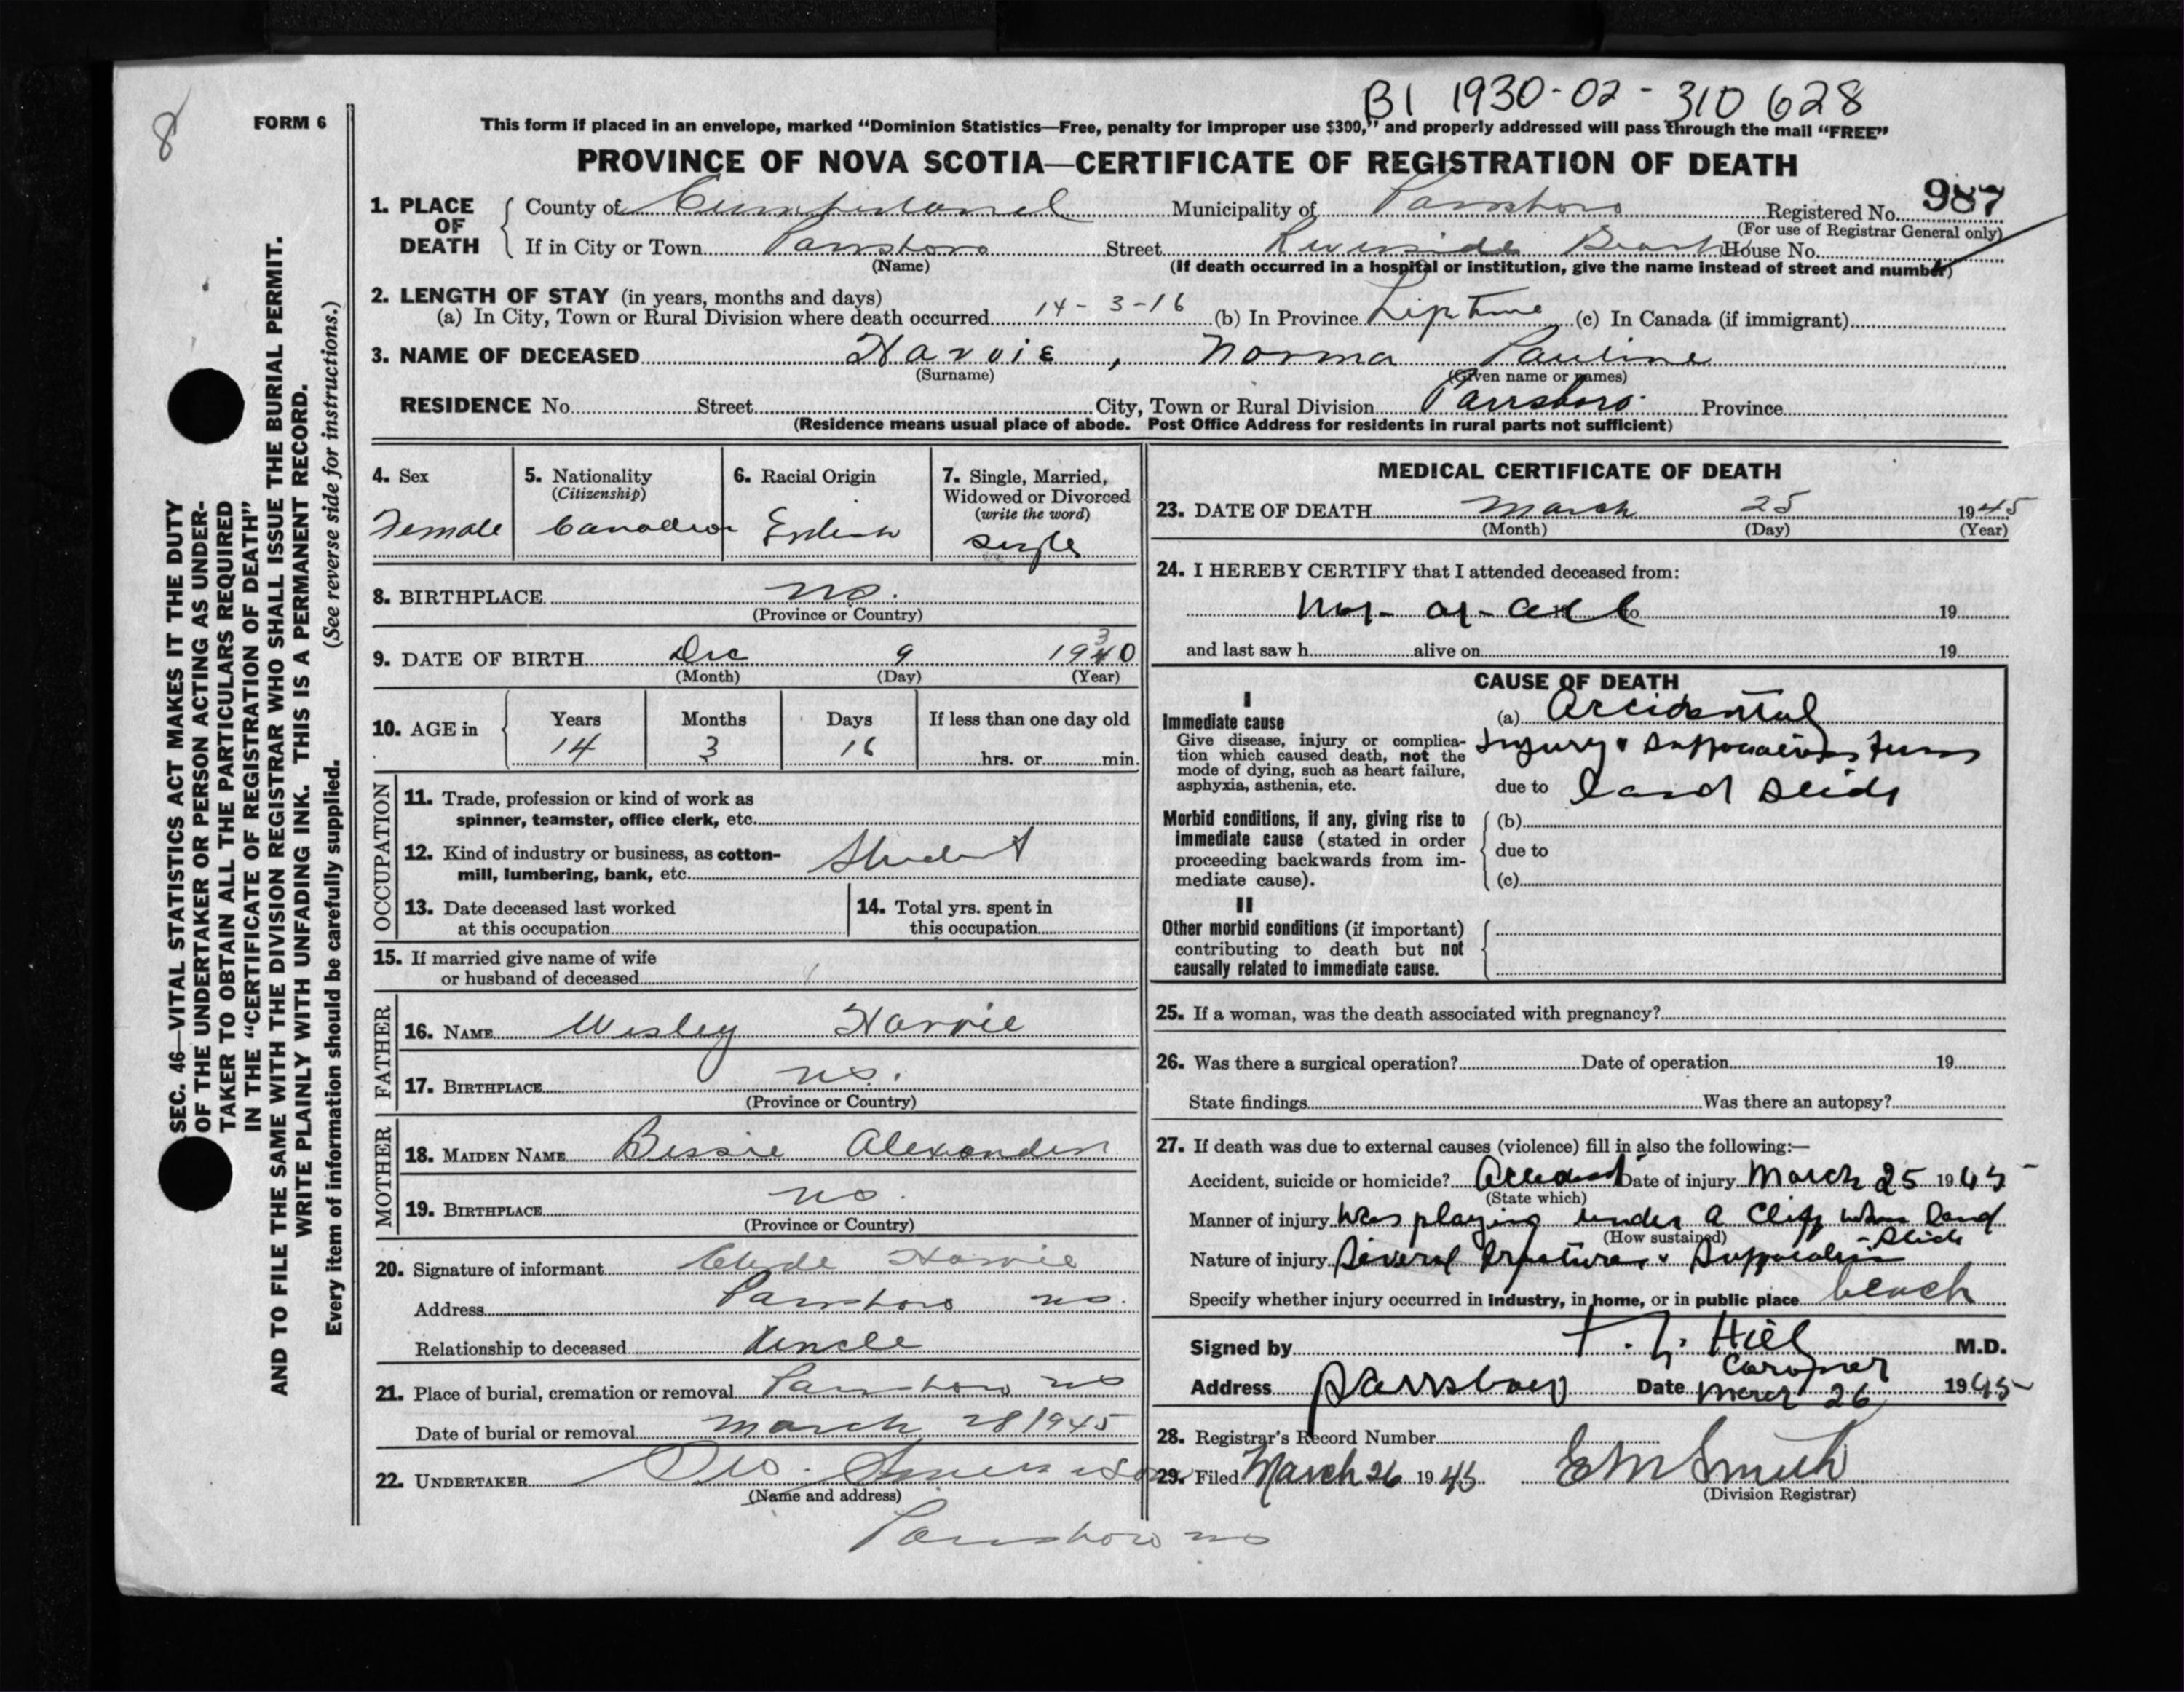 B1 1930-02-310 628
8
FORM 6
This form if placed in an envelope, marked "Dominion Statistics—Free, penalty for improper use $300," and properly addressed will pass through the mail "FREE"
PROVINCE OF NOVA SCOTIA—CERTIFICATE OF REGISTRATION OF DEATH
SEC. 46—VITAL STATISTICS ACT MAKES IT THE DUTY
OF THE UNDERTAKER OR PERSON ACTING AS UNDER-
TAKER TO OBTAIN ALL THE PARTICULARS REQUIRED
IN THE "CERTIFICATE OF REGISTRATION OF DEATH"
AND TO FILE THE SAME WITH THE DIVISION REGISTRAR WHO SHALL ISSUE THE BURIAL PERMIT.
WRITE PLAINLY WITH UNFADING INK. THIS IS A PERMANENT RECORD.
Every item of information should be carefully supplied. (See reverse side for instructions.)
1. PLACE OF DEATH
County of Cumberland Municipality of Parrsboro Registered No. 987
(For use of Registrar General only)
If in City or Town Parrsboro Street Riverside Beach House No.
(Name)
(If death occurred in a hospital or institution, give the name instead of street and number)
2. LENGTH OF STAY (in years, months and days)
(a) In City, Town or Rural Division where death occurred 14-3-16 (b) In Province Life Time (c) In Canada (if immigrant)
3. NAME OF DECEASED Harvie, Norma Pauline
(Surname) (Given name or names)
RESIDENCE No. Street City, Town or Rural Division Parrsboro Province
(Residence means usual place of abode. Post Office Address for residents in rural parts not sufficient)
4. Sex
Female
5. Nationality
(Citizenship)
Canadian
6. Racial Origin
English
7. Single, Married,
Widowed or Divorced
(write the word)
Single
8. BIRTHPLACE NS.
(Province or Country)
9. DATE OF BIRTH Dec 9 1930
(Month) (Day) (Year)
10. AGE in
Years Months Days If less than one day old
14 3 16 hrs. or min.
OCCUPATION
11. Trade, profession or kind of work as
spinner, teamster, office clerk, etc.
12. Kind of industry or business, as cotton-
mill, lumbering, bank, etc. Student
13. Date deceased last worked
at this occupation
14. Total yrs. spent in
this occupation
15. If married give name of wife
or husband of deceased
FATHER
16. NAME Wesley Harvie
17. BIRTHPLACE NS.
(Province or Country)
MOTHER
18. MAIDEN NAME Bessie Alexander
19. BIRTHPLACE NS.
(Province or Country)
20. Signature of informant Clyde Harvie
Address Parrsboro NS.
Relationship to deceased Uncle
21. Place of burial, cremation or removal Parrsboro NS
Date of burial or removal March 28 1945
22. UNDERTAKER
(Name and address)
Parrsboro NS
MEDICAL CERTIFICATE OF DEATH
23. DATE OF DEATH March 25 1945
(Month) (Day) (Year)
24. I HEREBY CERTIFY that I attended deceased from:
Not at all to 19
and last saw h alive on 19
CAUSE OF DEATH
I
Immediate cause
Give disease, injury or complica-
tion which caused death, not the
mode of dying, such as heart failure,
asphyxia, asthenia, etc.
(a) Accidental
Injury & Suffocation from
due to land slide
Morbid conditions, if any, giving rise to
immediate cause (stated in order
proceeding backwards from im-
mediate cause).
(b)
due to
(c)
II
Other morbid conditions (if important)
contributing to death but not
causally related to immediate cause.
25. If a woman, was the death associated with pregnancy?
26. Was there a surgical operation? Date of operation 19
State findings Was there an autopsy?
27. If death was due to external causes (violence) fill in also the following:—
Accident, suicide or homicide? Accident Date of injury March 25 1945
(State which)
Manner of injury Was playing under a cliff when land
(How sustained) slide
Nature of injury Several fractures & Suffocation
Specify whether injury occurred in industry, in home, or in public place beach
Signed by Hill M.D.
Coroner
Address Parrsboro Date March 26 1945
28. Registrar's Record Number
29. Filed March 26 1945 EM Smith
(Division Registrar)